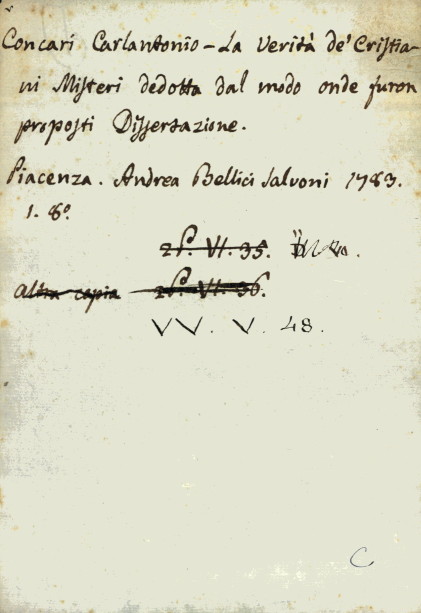 Concari Carlantonio - La Verità de' Cristia-
ni Misteri dedotta dal modo onde furon
proposti Dissertazione.
Piacenza. Andrea Bellici Salvoni 1783.
1. 8º.
2 P. VI. 35.
Altra copia 2 P. VI. 36.
VV. V. 48.
C